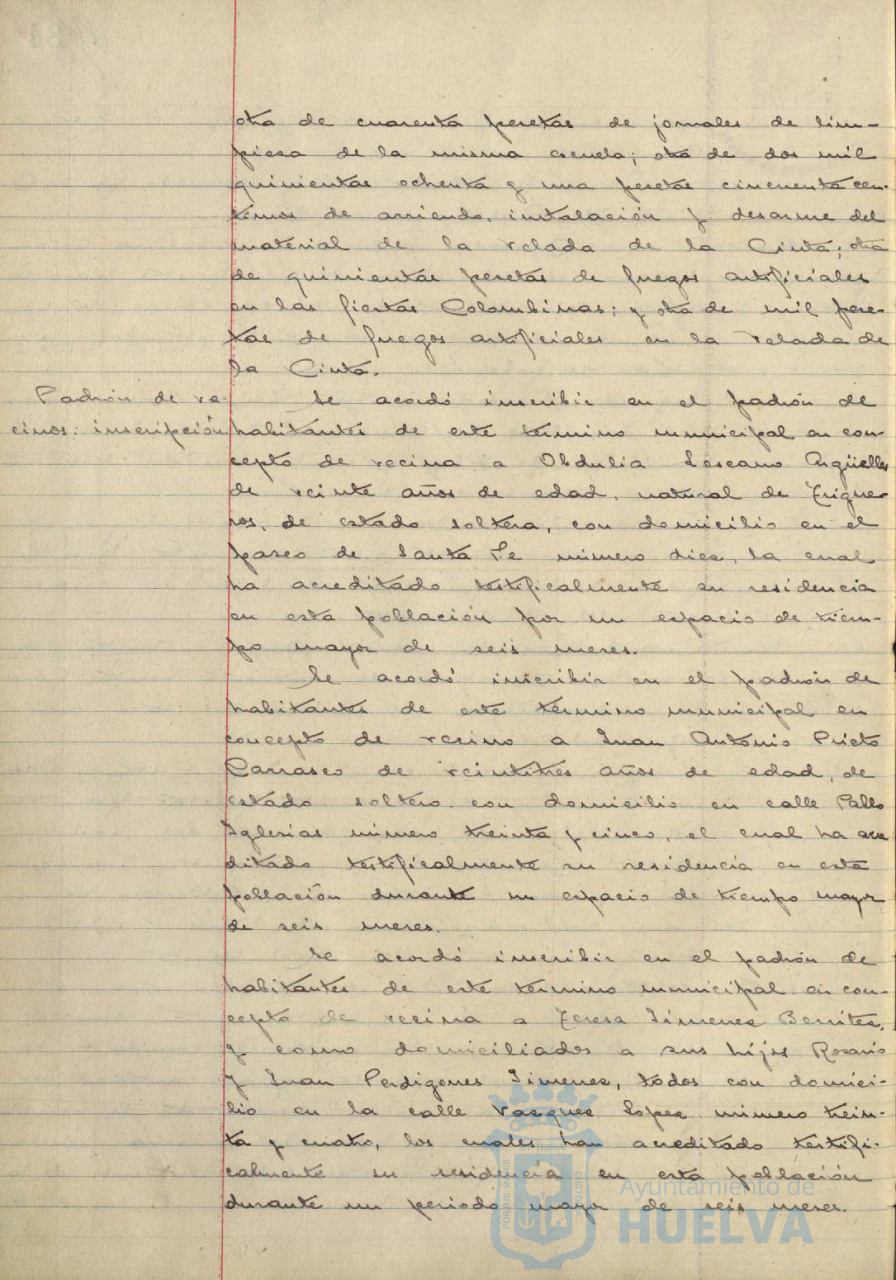 otra de cuarenta pesetas de jornales de lim-
pieza de la misma escuela; otra de dos mil
quinientas ochenta y una pesetas cincuenta cen-
timos de arriendo, instalación y desarme del
material de la velada de la Cinta; otra
de quinientas pesetas de fuegos artificiales
en las fiestas Colombinas; y otra de mil pese-
tas de fuegos artificiales en la velada de
la Cinta.
Padrón de ve-
cinos: inscripción
Se acordó inscribir en el padrón de
habitantes de este término municipal en con-
cepto de vecina a Obdulia Lescano Argüelles
de veinte años de edad, natural de Trigue-
ros, de estado soltera, con domicilio en el
paseo de Santa Fe número diez, la cual
ha acreditado testificalmente su residencia
en esta población por un espacio de tiem-
po mayor de seis meses.
Se acordó inscribir en el padrón de
habitantes de este término municipal en
concepto de vecino a Juan Antonio Prieto
Carrasco de veintitres años de edad, de
estado soltero con domicilio en calle Pablo
Iglesias número treinta y cinco, el cual ha acre
ditado testificalmente su residencia en esta
población durante un espacio de tiempo mayor
de seis meses.
Se acordó inscribir en el padrón de
habitantes de este término municipal en con-
cepto de vecina a Teresa Jimenez Benitez,
y como domiciliados a sus hijos Rosario
y Juan Perdigones Jimenez, todos con domici-
lio en la calle Vazquez Lopez número trein-
ta y cuatro, los cuales han acreditado testifi-
calmente su residencia en esta población
durante un periodo mayor de seis meses.
Ayuntamiento de
HUELVA